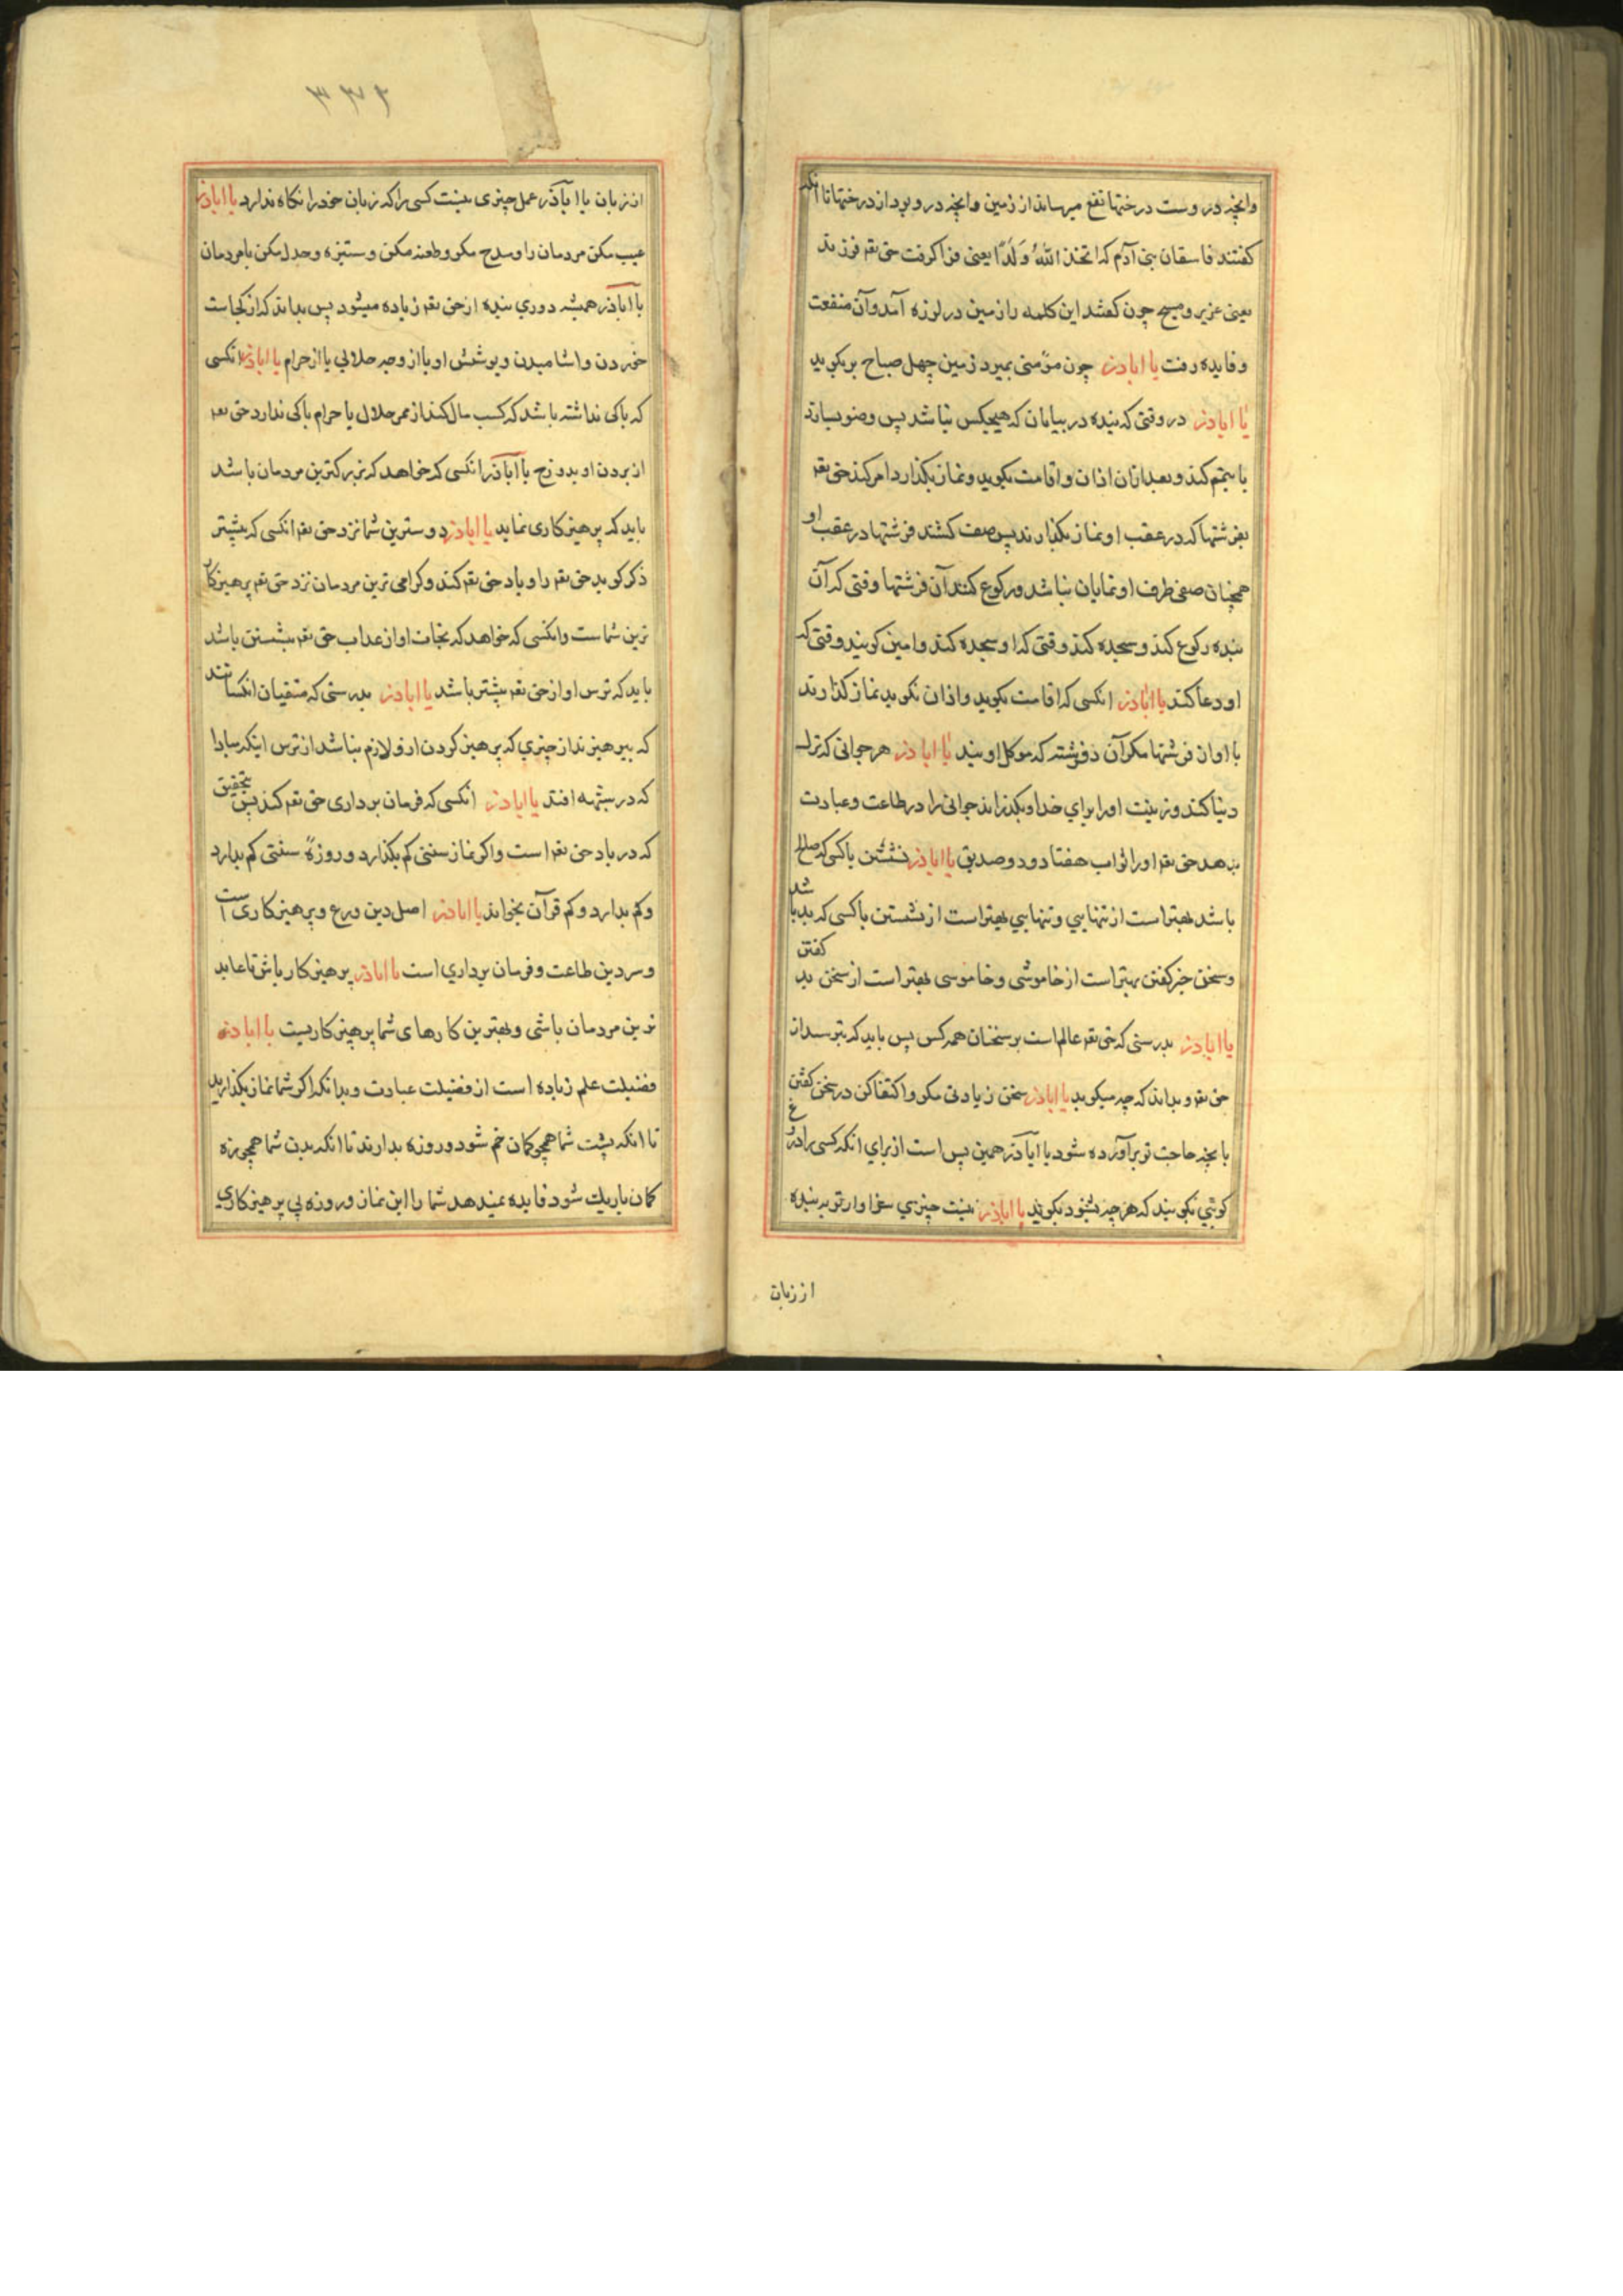 وانچه در وست درختها نفع میرساند از زمین وانچه در و بود از درختها تا انکه
کفتند فاسقان بنی آدم که اتخذ اللّهُ وَلَدًا یعنی فرا کرفت حق تعه فرزند
یعنی عزیر و مسیح چون کفتند این کلمه را زمین در لرزه آمد وآن منفعت
و فایده رفت یا اباذر چون مؤمنی بمیرد زمین چهل صباح بر بکرید
یا اباذر در وقتی که بنده در بیابان که هیچیکس نباشد پس وضو بسازد
یا تیمم کند و بعد ازان اذان و اقامت بکوید و نماز بکذارد امر کند حق تعه
بفرشتها که در عقب او نماز بکذارند پس صف کشند فرشتها در عقب او
همچنان صفی طرف او نمایان نباشد ورکوع کنند آن فرشتها وقتی که آن
بنده رکوع کند و سجده کند وقتی که او سجده کند وامین کویند وقتی که
او دعا کند یا اباذر انکسی که اقامت بکوید واذان نکوید نماز نکذارند
با او ان فرشتها مکر آن دو فرشته که موکل اویند یا اباذر هر جوانی که ترک
دنیا کند وزینت اورا برای خدا وبکذراند جوانی را در طاعت وعبادت
بدهد حق تعه اورا ثواب هفتاد ودو صدیق یا اباذر نشستن باکسی که صالح
باشد بهتر است از تنهایی وتنهایی بهتر است از نشستن باکسی که بد باشد
وسخن خیر کفتن بهتر است از خاموشی وخاموسی بهتر است از سخن بد کفتن
یا اباذر بدرستی که حق تعه عالم است بر سخنان همه کس پس باید که بترسد از
حق تعه و بداند که چه میکوید یا اباذر سخن زیادتی مکو واکتفا کن در سخن کفتن
بانچه حاجت تو برآورده شود یا اباذر همین پس است از برای انکه کسی را دروغ
کوئی بکویند که هرچه بشنود بکوید یا اباذر نیست چیزی سزاوارتر به بنده
از زبان
۳۷۶
از زبان یا اباذر عمل چیزی نیست کسی را که زبان خود را نکاه ندارد یا اباذر
عیب مکن مردمان را ومدح مکو وطعنه مکن وستیزه وجدل مکن بامردمان
یا اباذر همیشه دوری بنده از حق تعه زیاده میشود پس بداند که از کجاست
خوردن واشامیدن وپوشش او یا از وجه حلالی یا از حرام یا اباذر انکسی
که باکی نداشته باشد که کسب مال کند از ممر حلال یا حرام باکی ندارد حق تعه
از بردن او بدوزخ یا اباذر انکسی که خواهد که بزرکترین مردمان باشد
باید که پرهیزکاری نماید یا اباذر دوسترین شما نزد حق تعه انکسی که بیشتر
ذکر کوید حق تعه را و یاد حق تعه کند وکرامی ترین مردمان نزد حق تعه پرهیزکار
ترین شماست وانکسی که خواهد که نجات او از عذاب حق تعه بیشتر باشد
باید که ترس او از حق تعه بیشتر باشد یا اباذر بدرستی که متقیان انکسانند
که بپرهیزند از چیزی که پرهیز کردن ازو لازم نباشد از ترس اینکه مبادا
که در شبهه افتد یا اباذر انکسی که فرمان برداری حق تعه کند پس بتحقیق
که در یاد حق تعه است واکر نماز سنتی کم بکذارد وروزهٔ سنتی کم بدارد
وکم بدارد وکم قرآن بخواند یا اباذر اصل دین ورع وپرهیزکاری است
وسر دین طاعت وفرمان برداری است یا اباذر پرهیزکار باش تا عابد
ترین مردمان باشی وبهترین کارهای شما پرهیزکاریست یا اباذر
فضیلت علم زیاده است از فضیلت عبادت وبدانکه اکر شما نماز بکذارید
تا انکه پشت شما همچو کمان خم شود وروزه بدارند تا انکه بدن شما همچو زه
کمان باریک شود فایده نمیدهد شما را این نماز وروزه بی پرهیزکاری